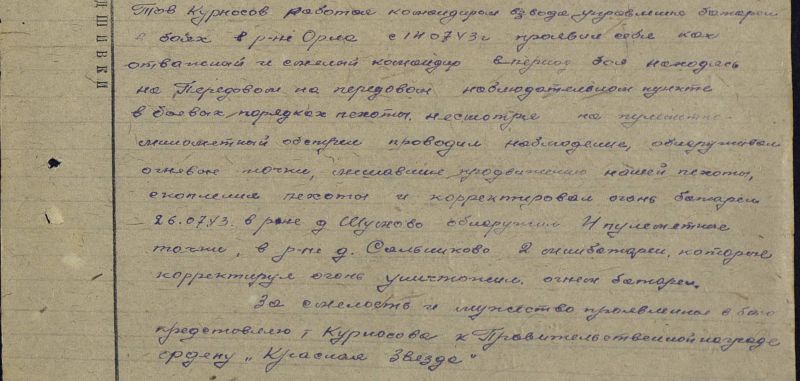 Тов Курносов работая командиром взвода управления батареи
в боях в р-не Орла с 14 07 43г проявил себя как
отважный и смелый командир в период боя находясь
на Передовом на передовом наблюдательном пункте
в боевых порядках пехоты, несмотря на пулеметно
минометный обстрел проводил наблюдение, обнаруживал
огневые точки, мешавшие продвижению нашей пехоты,
скопления пехоты и корректировал огонь батареи
26.07.43. в р-не д обнаружил 4 пулеметные
точки, в р-не д. Сальниково 2 минбатареи, которые
корректируя огонь уничтожил огнем батареи.
За смелость и мужество проявленное в бою
представляю т Курносова к Правительственной награде
ордену „Красная Звезда"
ДШИВКИ